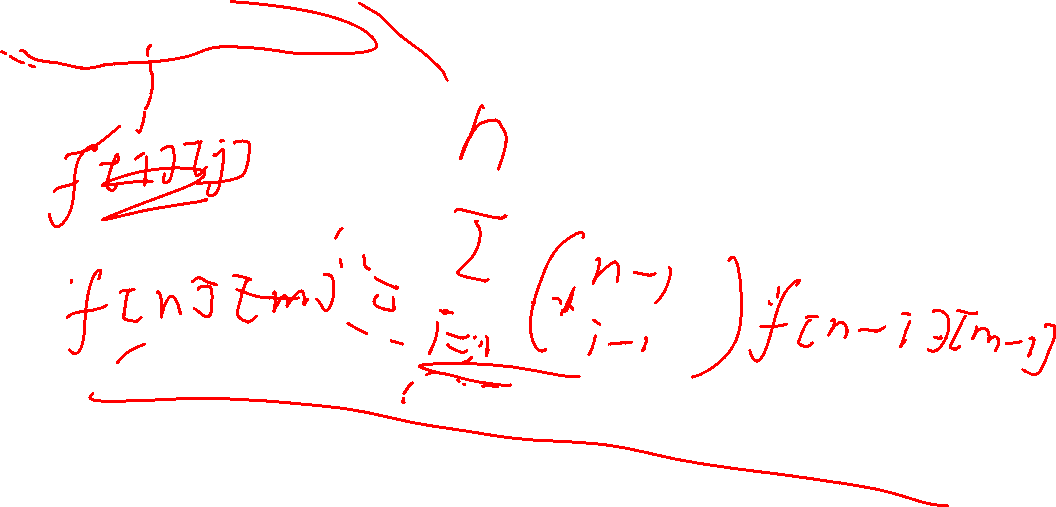 f[i][j]
f[n][m] = \sum_{i=1}^{n} \binom{n-1}{i-1} f[n-i][m-1]